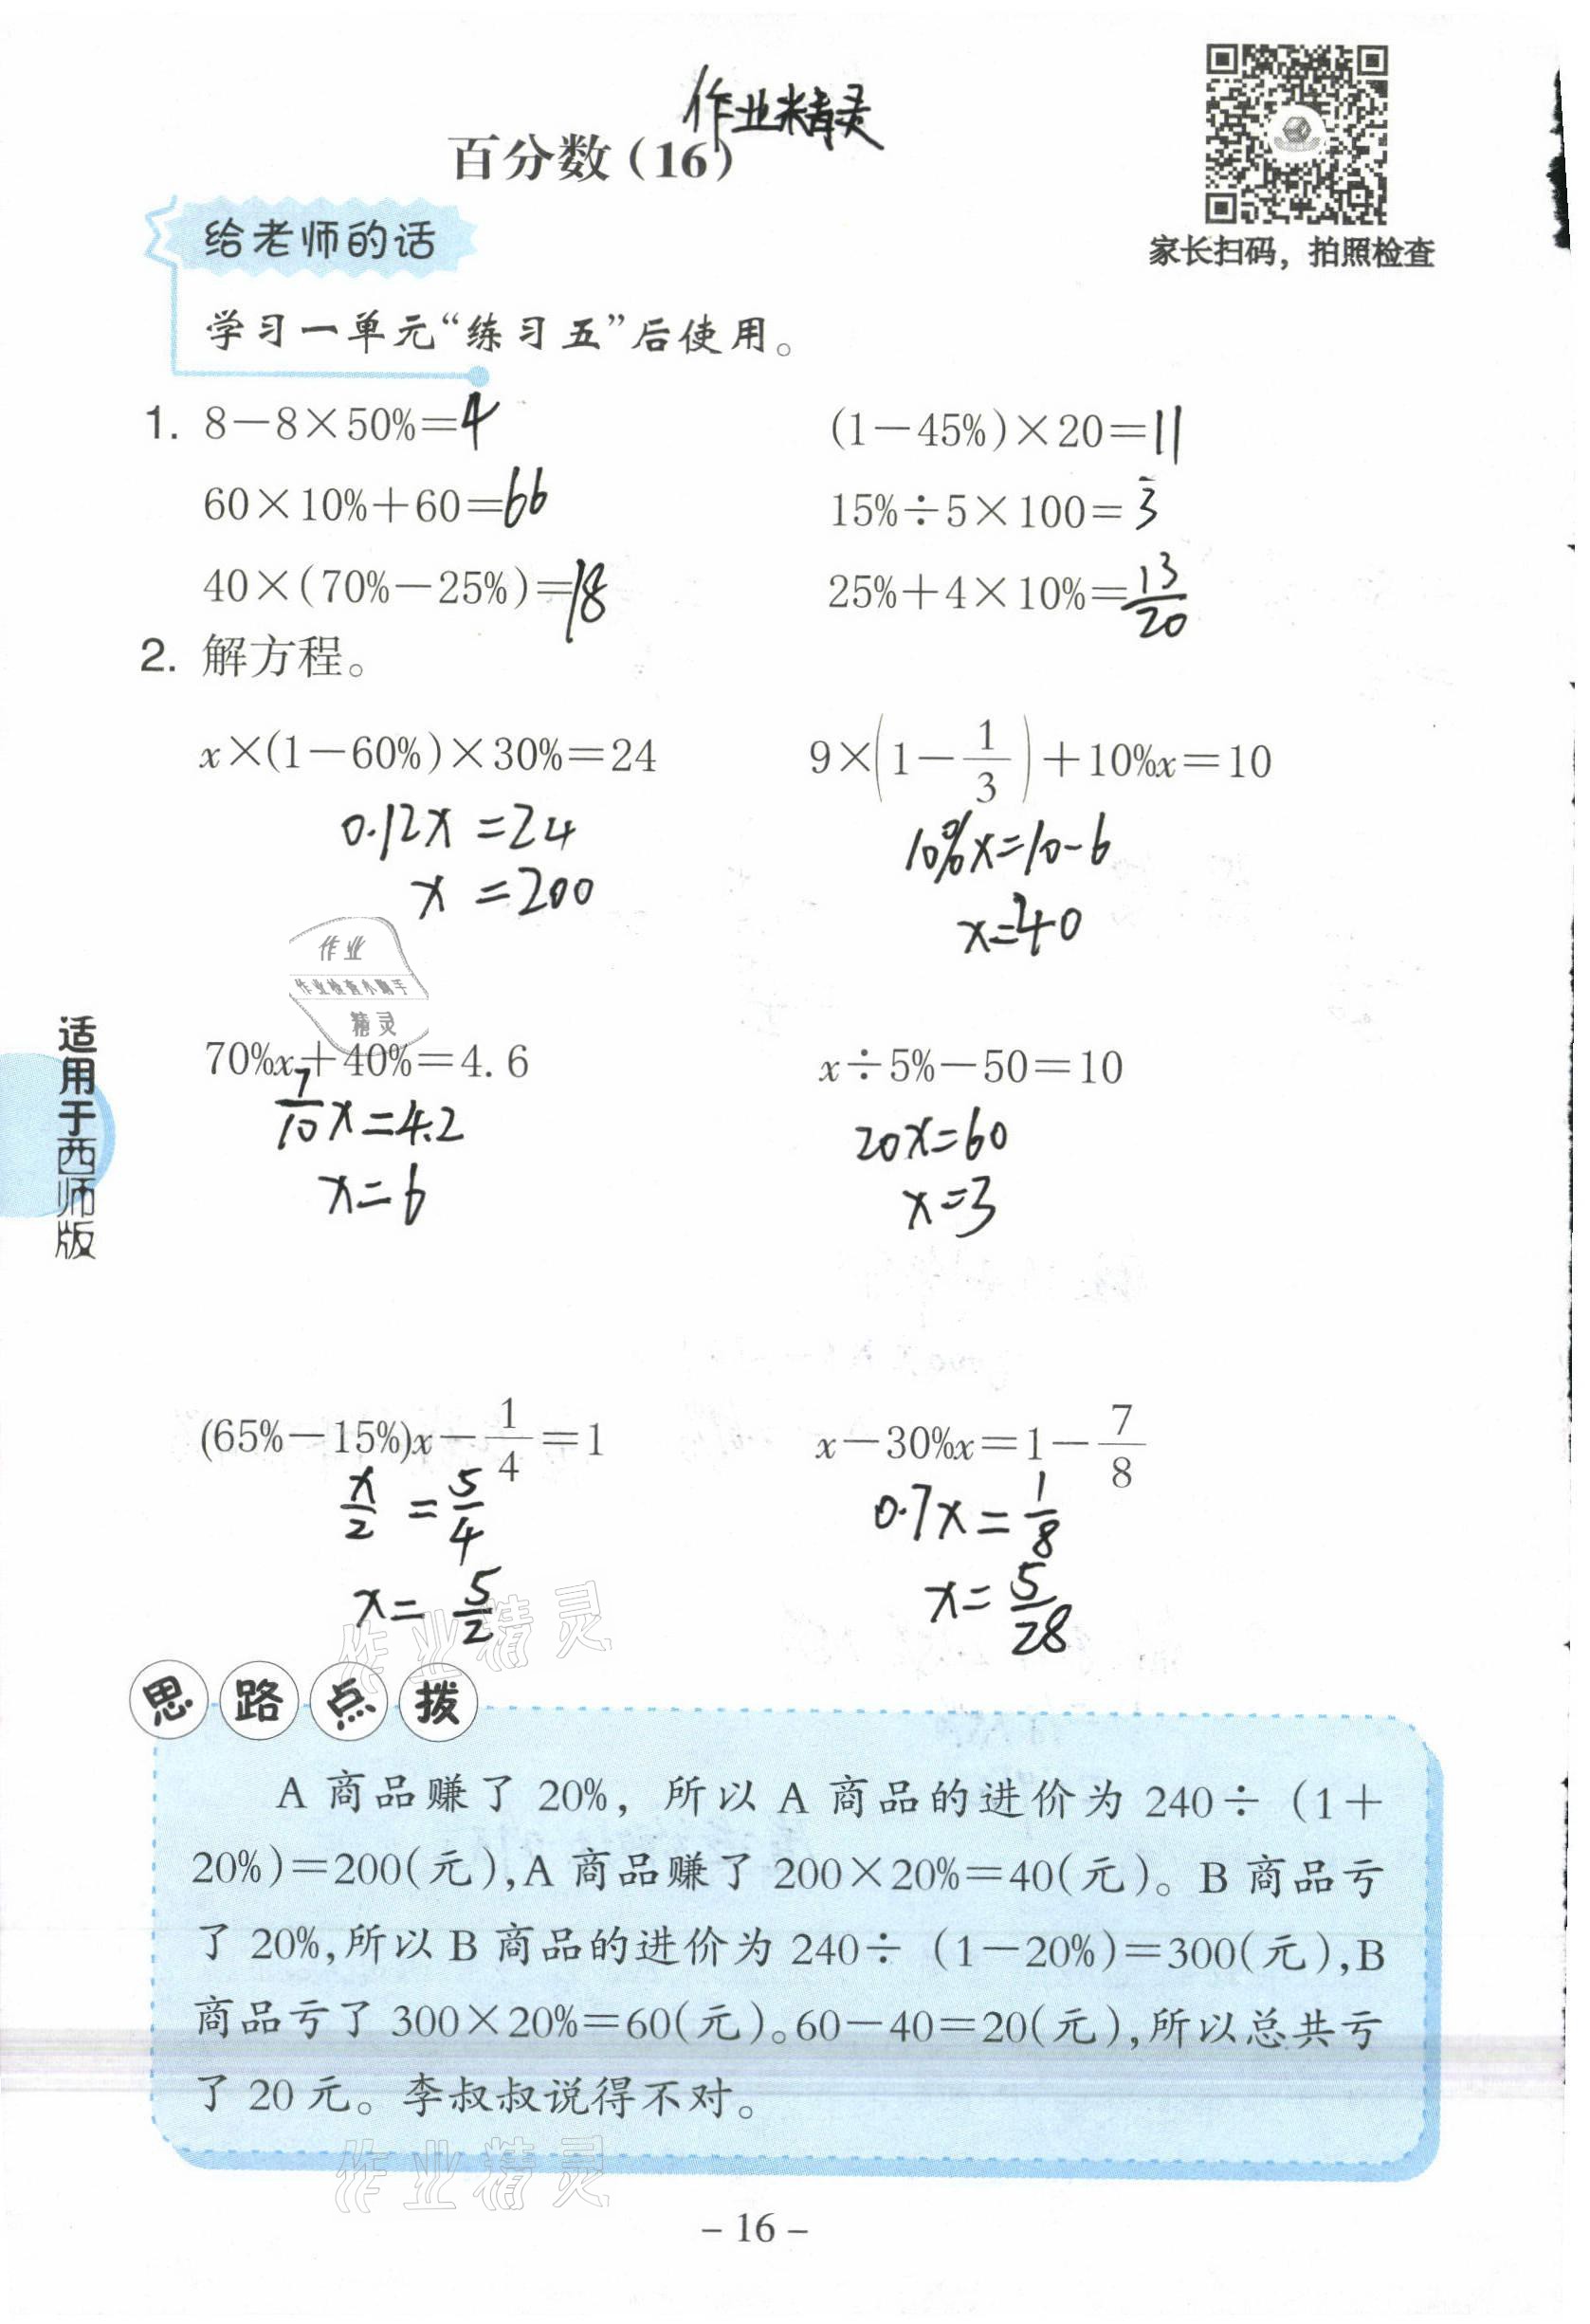 作业精灵
百分数(16)
家长扫码，拍照检查
给老师的话
学习一单元“练习五”后使用。
1. 8－8×50%＝4
(1－45%)×20＝11
60×10%＋60＝66
15%÷5×100＝3
40×(70%－25%)＝18
25%＋4×10%＝13/20
2. 解方程。
x×(1－60%)×30%＝24
9×(1－1/3)＋10%x＝10
0.12x＝24
10%x＝10-6
x＝200
x＝40
作业
作业检查小助手
精灵
70%x＋40%＝4.6
x÷5%－50＝10
7/10x＝4.2
20x＝60
x＝6
x＝3
适用于西师版
(65%－15%)x－1/4＝1
x－30%x＝1－7/8
x/2＝5/4
0.7x＝1/8
x＝5/2
x＝5/28
作业精灵
思路点拨
A商品赚了20%，所以A商品的进价为240÷(1＋
20%)＝200(元),A商品赚了200×20%＝40(元)。B商品亏
了20%,所以B商品的进价为240÷(1－20%)＝300(元),B
商品亏了300×20%＝60(元)。60－40＝20(元),所以总共亏
了20元。李叔叔说得不对。
作业精灵
– 16 –